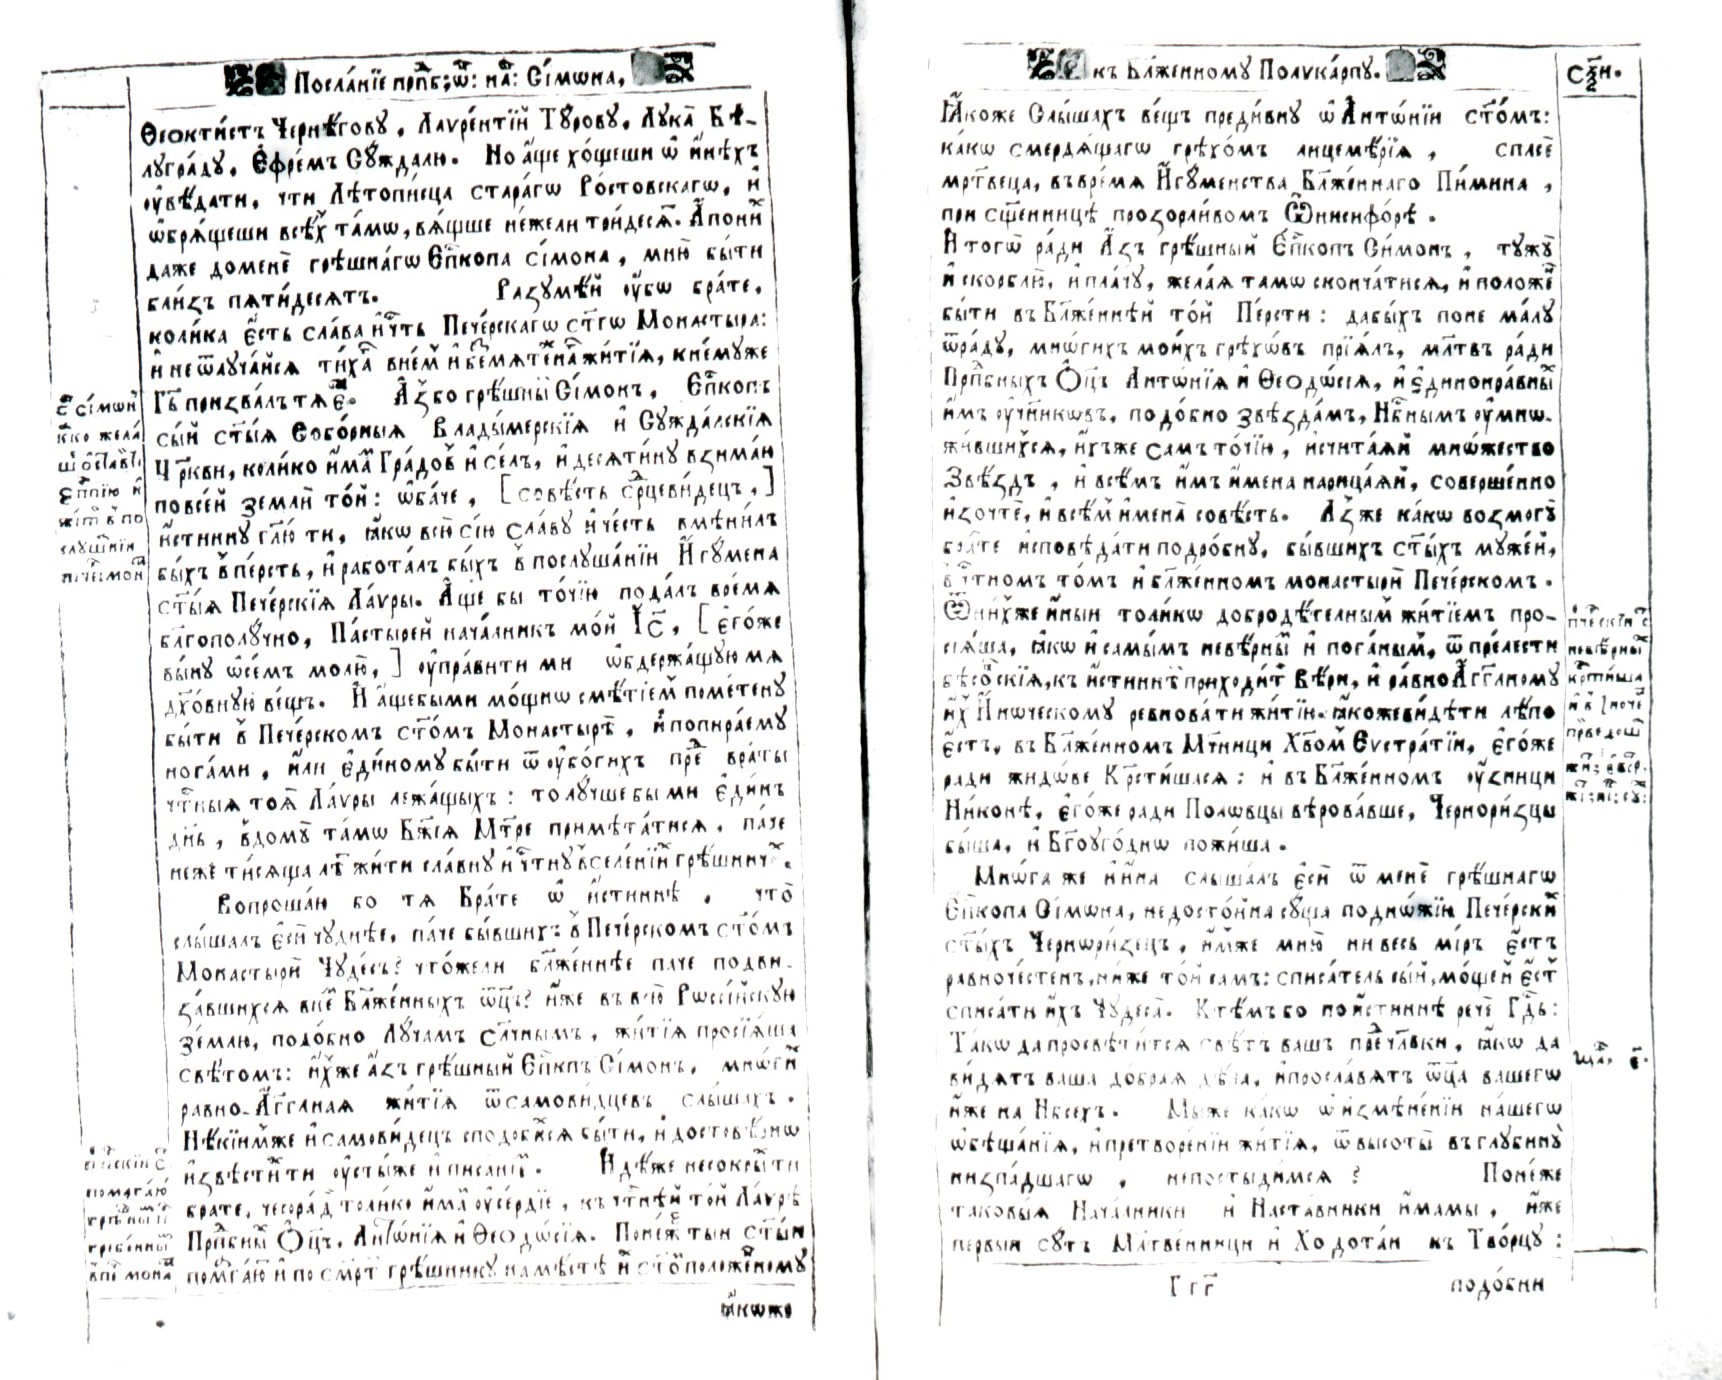 Посла́нїе прпⷣб: ѿ: на: Сі́мѡна,
Ѳеокти́стъ Черни́гову, Лаѵре́нтїй Ту́рову, Лука̀ Бѣ-
лугра́ду, Є҆фре́мъ Су́ждалю. Но а҆́ще хо́щеши ѡ҆ и҆нѣ́хъ
ᲂу҆вѣ́дати, чти Лѣтопи́сца стара́гѡ Росто́вскагѡ, и҆
ѡ҆бря́щеши всѣ́хъ та́мѡ, вя́щше не́жели три́десѧⷮ. А҆ по ни́ⷯ
да́же до менѐ грѣ́шнагѡ Е҆пⷭкопа Сі́мона, мню̀ бы́ти
бли́зъ пѧти́десѧтъ. Разумѣ́й ᲂу҆́бѡ бра́те,
коли́ка є҆́сть сла́ва и҆ чⷭть Пече́рскагѡ ст҃гѡ Монастыра:
и҆ не ѿлуча́йсѧ ти́хаⷢ в не́мъ и҆ безмѧте́жнаⷢ житїѧ, к не́муже
Гⷭь призва́лъ тѧ є҆́ⷭ. А҆́з бо грѣ́шны Сі́монъ, Е҆пⷭкопъ
сы́й ст҃ы́ѧ Собо́рныѧ Влады́мерскїѧ и҆ Сужда́лскїѧ
Цр҃кви, коли́ко и҆́маⷨ Градо́въ и҆ се́лъ, и҆ десѧти́ну взима́ю
по все́й землѝ то́й: ѡ҆ба́че, [совѣ́сть срⷣцевиⷣецъ,]
и҆́стинну гл҃ю ти, ꙗ҆́кѡ всю̀ сі́ю сла́ву и҆ че́сть вмѣни́лъ
бы́хъ в пе́рсть, и҆ рабо́талъ бы́хъ в послуша́нїи И҆гу́мена
ст҃ы́ѧ Пече́рскїѧ Ла́ѵры. А҆́ще бы то́чїю пода́лъ вре́мѧ
благополу́чно, Па́стырей нача́лникъ мо́й І҆с҃, [є҆го́же
вы́ну ѡ҆ се́мъ молю̀,] ᲂу҆пра́вити ми ѡ҆бдержа́щую мѧ
дх҃о́вную ве́щь. И҆ а҆́ще бы ми мо́щнѡ смѣ́тїемъ поме́тену
бы́ти в Пече́рскомъ ст҃о́мъ Монастырѣ̀, и҆ попира́ему
нога́ми, и҆лѝ є҆ди́ному бы́ти ѿ ᲂу҆бо́гихъ преⷣ враты̀
чⷭтны́ѧ тоѧ̀ Ла́ѵры лежа́щыхъ: то лу́чше бы ми є҆ди́нъ
дн҃ь, в дому̀ та́мѡ Бж҃їѧ Мт҃ре примѣта́тисѧ, па́че
не́же ти́сѧща лѣⷮ жи́ти сла́вну и҆ чⷭтну в селе́нїи грѣ́шничⷯ.
Вопроша́ю бо тѧ Бра́те ѡ҆ и҆́стиннѣ, что̀
слы́шалъ є҆сѝ чу́днѣе, па́че бы́вшихъ в Пече́рскомъ ст҃о́мъ
Монастырѝ Чуде́съ? что́жели блаже́ннѣе па́че подви-
за́вшихсѧ в не́мъ Бл҃же́нныхъ ѻ҆ц҃ъ? и҆́же въ всю̀ Рѡссі́йскую
зе́млю, подо́бно Луча́мъ сл҃нчнымъ, жи́тїѧ просїѧ́ша
свѣ́томъ: и҆́хже а҆́зъ грѣ́шный Е҆пⷭкпъ Сі́монъ, мнѡ́гїй
равно-А҆́гг҃лнаѧ жи́тїѧ ѿ самови́дцевъ слы́шахъ.
Нѣ́кїимже и҆ самови́децъ сподо́бихсѧ бы́ти, и҆ достовѣ́рнѡ
и҆звѣсти́ти ᲂу҆сты́же и҆ писа́нїи. И҆дѣ́же не сокры́ ти
брате, чесора́дⷤ толи́ко и҆́маⷨ ᲂу҆се́рдїе, къ чⷭтнѣ́й то́й Ла́ѵрѣ
Прпⷣбны́ⷯ Ѻ҆ц҃ъ, Антѡ́нїѧ и҆ Ѳеодѡ́сїѧ. Поне́ж ты́и ст҃ы́и
помага́ю и҆ по сме́рт грѣ́шнику на мѣ́стѣ и҆ ст҃о́ положе́ному
ꙗ҆́кѡже
с҃ Сімѡнⸯ
ꙗ҆́кѡ жела́
ѡ҆ста́ви
є҆ппїю и҆
жи́т в по
слуша́нїи
пече́ монⷭ
пече́скїи с҃
помага́ю
грѣ́шны
гребе́нны
в пе́ монⷭ
къ Бл҃же́нному Полука́рпу.
Сѯ҃и.
Ꙗ҆́коже Слы́шахъ ве́щь преди́вну ѡ҆ Антѡ́нїи ст҃о́мъ:
ка́кѡ смердѧ́щагѡ грѣхо́мъ лицемѣ́рїѧ, спасѐ
мр҃твеца, въ вре́мѧ И҆гу́менства Бл҃же́ннаго Пі́мина,
при сщ҃е́нницѣ прозорли́вомъ Ѻ҆ниси́форѣ.
И҆ тогѡ̀ ра́ди А҆́зъ грѣ́шный Е҆пⷭкопъ Си́монъ, тужу̀
и҆ скорблю̀, и҆ пла́чу, жела́ѧ та́мѡ сконча́тисѧ, и҆ положе́ⷩ
бы́ти въ Бл҃же́ннѣй то́й Пе́рсти: дабы́хъ поне́ ма́лу
ѿра́ду, мнѡ́гихъ мои́хъ грѣхѡ́въ прїѧ́лъ, мл҃твъ ра́ди
Прпⷣбныхъ Ѻ҆ц҃ъ Антѡ́нїѧ и҆ Ѳеодѡ́сїѧ, и҆ є҆динонра́вны́ⷯ
и҆́мъ ᲂу҆чн҃икѡвъ, подо́бно звѣзда́мъ, Нб҃нымъ ᲂу҆мнѡ-
жи́вшихсѧ, и҆́хъже са́мъ то́чїю, исчита́ѧй мнѡ́жество
Звѣ́здъ, и҆ всѣ́мъ и҆́мъ и҆мена̀ нарица́ѧй, соверше́нно
и҆зочтѐ, и҆ всѣ́мъ и҆мена̀ совѣ́сть. А҆́з же ка́кѡ возмогу̀
бра́те исповѣ́дати подро́бну, бы́вшихъ ст҃ы́хъ муже́й,
в чⷭтномъ то́мъ и҆ бл҃же́нномъ монастырѝ Пече́рскомъ.
Ѿ ни́хже и҆́ныи толи́кѡ добродѣ́телнымъ жи́тїемъ про-
сїѧ́ша, ꙗ҆́кѡ и҆ самы́мъ невѣ́рны́ⷨ и҆ пога́нымъ, ѿ пре́лести
бѣсо́вскїѧ, къ и҆́стиннѣ приходи́ти Вѣ́ри, и҆ ра́вно А҆́гг҃лному
и҆́хъ И҆́нѡческому ревнова́ти жи́тїю. ꙗ҆́коже ви́дѣти лѣ́по
є҆́стъ, въ Бл҃же́нномъ Мч҃ници Хв҃омъ Е҆ѵстра́тїи, є҆го́же
ра́ди жи́дѡве Крⷭти́шасѧ: и҆ въ Бл҃же́нномъ ᲂу҆́зници
Ни́конѣ, є҆го́же ра́ди По́лѡвцы вѣрова́вше, Чернори́зцы
бы́ша, и҆ Бг҃оуго́днѡ пожи́ша.
Мнѡ́га же и҆ и҆́на слы́шалъ є҆сѝ ѿ менѐ грѣ́шнагѡ
Е҆пⷭкопа Сі́мѡна, недосто́йна су́ща подно́жїю Пече́рскїⷯ
ст҃ы́хъ Чернѡри́зецъ, и҆́мже мню̀ ни ве́сь мі́ръ є҆́стъ
равноче́стенъ, ни́же то́й са́мъ: списа́тель сы́й, мо́щей є҆́ст
списа́ти и҆́хъ Чудеса̀. К тѣ́мъ бо пои́стиннѣ рече́ Гдⷭь:
Та́кѡ да просвѣти́тсѧ свѣ́тъ ва́шъ преⷣ члвⷦки, ꙗ҆́кѡ да
ви́дѧтъ ва́ша до́браѧ дѣ́ла, и҆ просла́вѧтъ ѻ҆ц҃а ва́шегѡ
и҆́же на Нб҃се́хъ. Мы́же ка́кѡ ѡ҆ и҆змѣне́нїи на́шегѡ
ѡ҆бѣща́нїѧ, и҆ претворе́нїи жи́тїѧ, ѿ высоты̀ въ глубину̀
низпа́дшагѡ, непостыди́мсѧ? Поне́же
таковы́ѧ Нача́лники и҆ Наста́вники и҆́мамы, и҆́же
пе́рвыи су́ть Мл҃тве́нници и҆ Хода́таи къ Тво́рцу:
Ггг
подо́бни
пче́скїи с҃
невѣ́рны
крⷭти́ша
приведо́ш
зач҃, є҃.